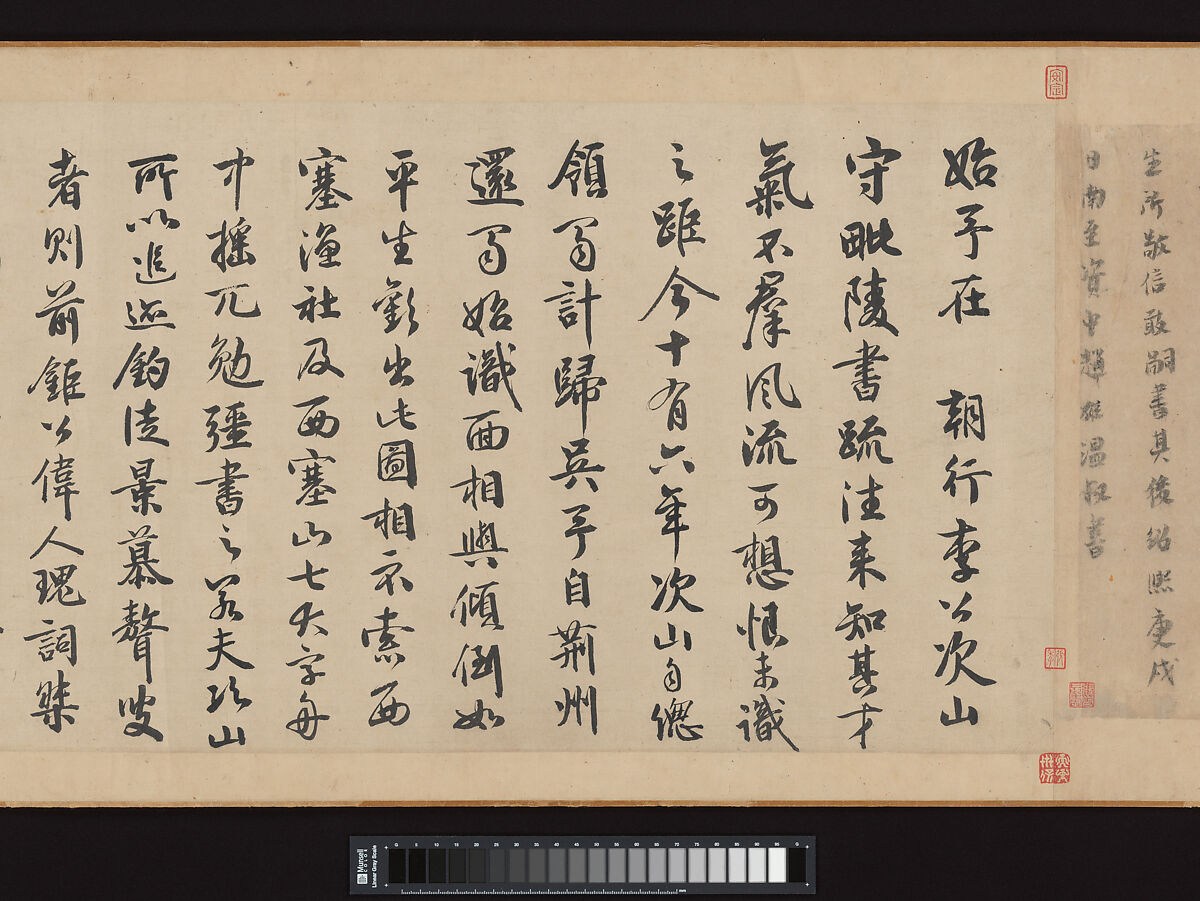 生所敬信敢嗣書其後紹熙庚戌
日南至資中趙雄溫叔書
始予在 朝行李公次山
守毗陵書疏往來知其才
氣不羣風流可想恨未識
之距今十有六年次山自總
領蜀計歸吳予自荊州
還蜀始識面相與傾倒如
平生歡出此圖相示索西
塞漁社及西塞山七大字舟
中搖兀勉彊書之若夫次山
所以追迹釣徒景慕聱叟
者則前鉅公偉人瑰詞傑